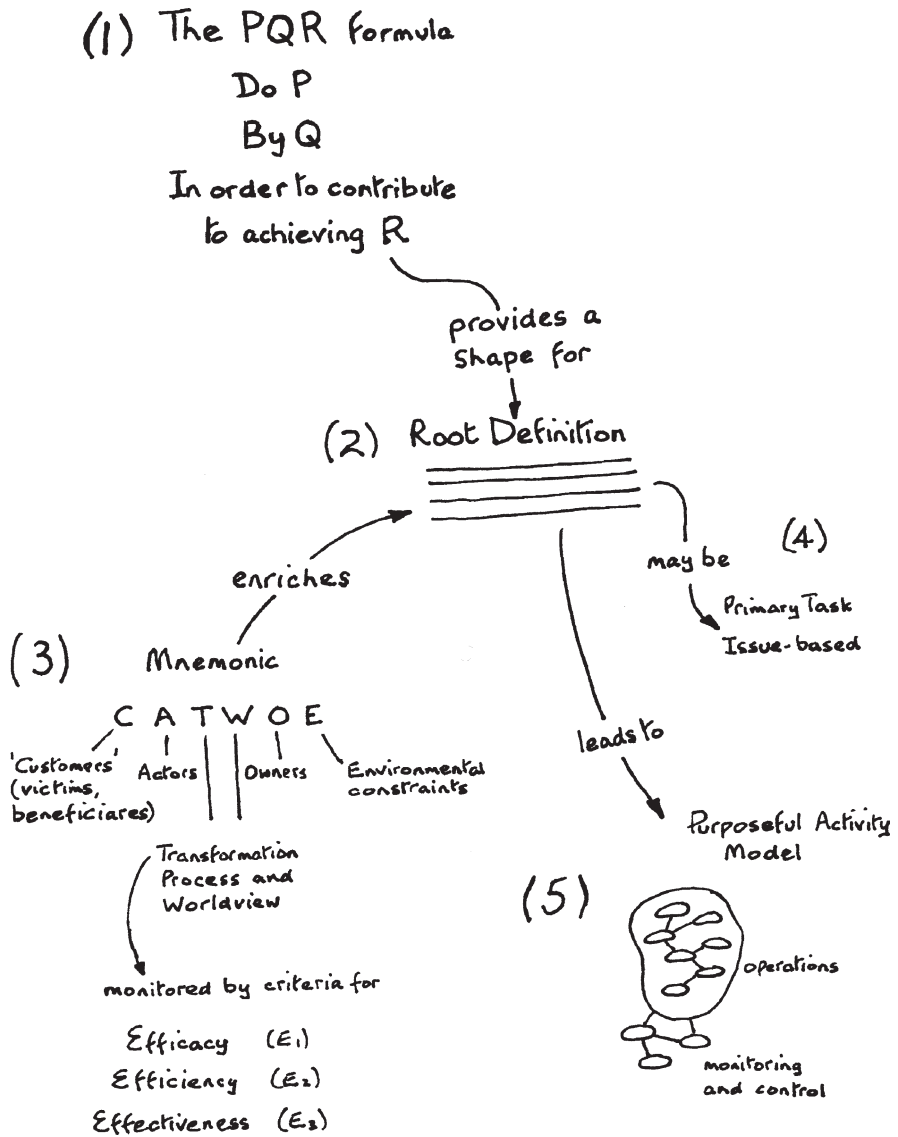 (1) The PQR formula
Do P
By Q
In order to contribute
to achieving R
provides a
shape for
(2) Root Definition
may be
(4)
Primary Task
Issue-based
enriches
(3)
Mnemonic
C A T W O E
'Customers'
(victims,
beneficiares)
Actors
Owners
Environmental
constraints
Transformation
Process and
Worldview
monitored by criteria for
Efficacy (E₁)
Efficiency (E₂)
Effectiveness (E₃)
leads to
Purposeful Activity
Model
(5)
operations
monitoring
and control